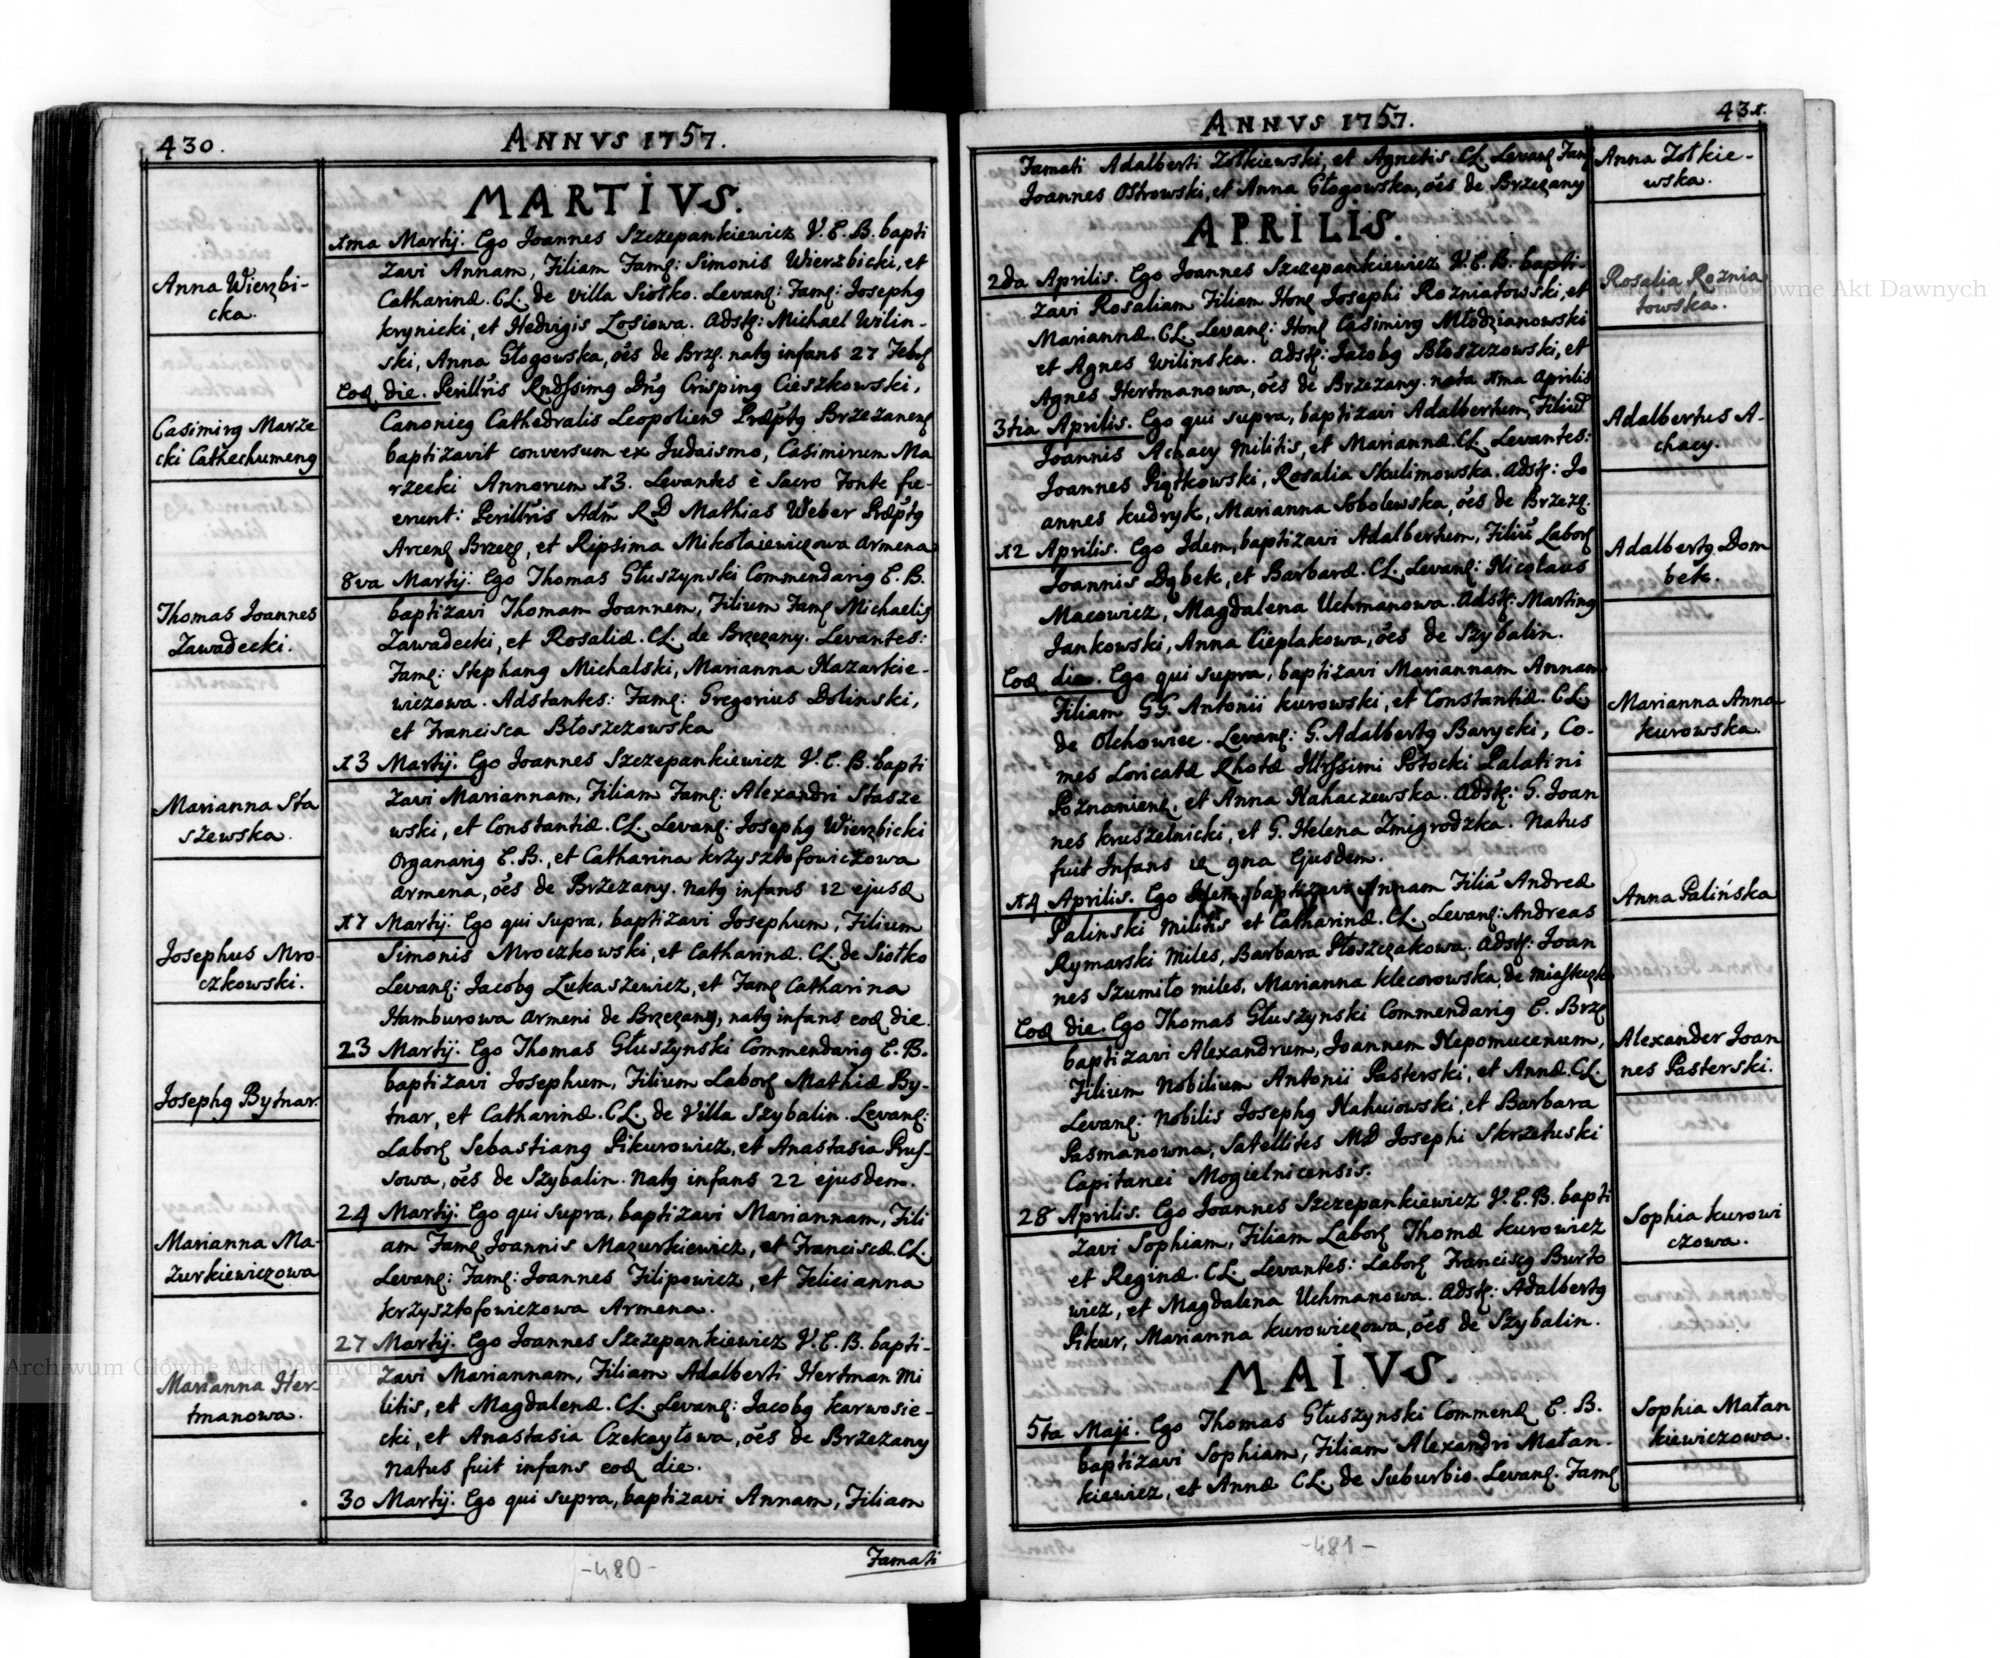 430.
ANNVS 1757.
MARTIVS.
Anna Wierzbi-
cka.
1ma Martij. Ego Joannes Szczepankiewicz V. E. B. bapti
zavi Annam, Filiam Famq: Simonis Wierzbicki, et
Catharinæ. CL. de villa Siołko. Levanq: Famq: Josephq
Krynicki, et Hedvigis Łosiowa. Adstq: Michael Wilin-
ski, Anna Głogowska, oēs de Brzq. natq infans 27 Febrq
Casimirq Marze
cki Cathechumenq
Eoq die. Perillris Rndssimq Dnq Crispinq Cieszkowski,
Canonicq Cathedralis Leopolienq Præptq Brzezanenq
baptizavit conversum ex Judaismo, Casimirum Ma
rzecki Annorum 13. Levantes è Sacro Fonte fu-
erunt: Perillris Adm RD Mathias Weber Præptq
Arcenq Brzezq, et Ripsima Mikołaiewiczowa Armena
Thomas Joannes
Zawadecki.
8va Martij. Ego Thomas Głuszynski Commendariq E. B.
baptizavi Thomam Joannem, Filium Famq Michaelis
Zawadecki, et Rosaliæ. CL. de Brzezany. Levantes:
Famq: Stephanq Michalski, Marianna Nazarkie-
wiczowa. Adstantes: Famq: Gregorius Dolinski,
et Francisca Błoszczowska
Marianna Sta
szewska.
13 Martij. Ego Joannes Szczepankiewicz V. E. B. bapti
zavi Mariannam, Filiam Famq: Alexandri Stasze
wski, et Constantiæ. CL. Levanq: Josephq Wierzbicki
Organariq E. B., et Catharina Krzysztofowiczowa
Armena, oēs de Brzezany. natq infans 12 ejusd
Josephus Mro-
czkowski.
17 Martij. Ego qui supra, baptizavi Josephum, Filium
Simonis Mroczkowski, et Catharinæ. CL. de Siołko
Levanq: Jacobq Łukaszewicz, et Famq Catharina
Hamburowa Armeni de Brzezany, natq infans eoq die.
Josephq Bytnar.
23 Martij. Ego Thomas Głuszynski Commendariq E. B.
baptizavi Josephum, Filium Laborq Mathiæ By-
tnar, et Catharinæ. CL. de Villa Szybalin. Levanq:
Laborq Sebastianq Pikurowicz, et Anastasia Prus-
sowa, oēs de Szybalin. Natq infans 22 ejusdem.
Marianna Ma-
zurkiewiczowa
24 Martij. Ego qui supra, baptizavi Mariannam, Fili
am Famq Joannis Mazurkiewicz, et Franciscæ. CL.
Levanq: Famq: Joannes Filipowicz, et Felicianna
Krzysztofowiczowa Armena.
Marianna Her-
tmanowa.
27 Martij. Ego Joannes Szczepankiewicz V. E. B. bapti-
zavi Mariannam, Filiam Adalberti Hertman Mi
litis, et Magdalenæ. CL. Levanq: Jacobq Karwosie-
cki, et Anastasia Czekayłowa, oēs de Brzezany
Natus fuit infans eoq die.
30 Martij. Ego qui supra, baptizavi Annam, Filiam
Famati
-480-
ANNVS 1757.
431.
Famati Adalberti Zołkiewski, et Agnetis. CL. Levanq Famq
Joannes Ostrowski, et Anna Głogowska, oēs de Brzezany
Anna Zołkie-
wska.
APRILIS.
Rosalia Roznia
towska.
2da Aprilis. Ego Joannes Szczepankiewicz V. E. B. bapti-
zavi Rosaliam Filiam Honq Josephi Rozniatowski, et
Mariannæ. CL. Levanq: Honq Casimirq Młodzianowski
et Agnes Wilinska. Adstq: Jacobq Błoszczowski, et
Agnes Hertmanowa, oēs de Brzezany. nata 1ma Aprilis
Adalbertus A-
chacy.
3tia Aprilis. Ego qui supra, baptizavi Adalbertum, Filiū
Joannis Achacy Militis, et Mariannæ. CL. Levantes:
Joannes Piątkowski, Rosalia Skulimowska. Adstq: Jo
annes Kudryk, Marianna Sobolewska, oēs de Brzezq.
Adalbertq Dom
bek.
12 Aprilis. Ego Idem, baptizavi Adalbertum, Filiū Laborq
Joannis Dąbek, et Barbaræ. CL. Levanq: Nicolaus
Macowicz, Magdalena Uchmanowa. Adstq: Martinq
Jankowski, Anna Cieplakowa, oēs de Szybalin.
Marianna Anna
Kurowska.
Eoq die. Ego qui supra, baptizavi Mariannam Annam
Filiam GG. Antonii Kurowski, et Constantiæ. CL.
de Olchowiec. Levanq: G. Adalbertq Barycki, Co-
mes Loricatæ Rhotæ Illrssimi Potocki Palatini
Poznanienq, et Anna Nahaczewska. Adstq: G. Joan
nes Kruszelnicki, et G. Helena Zmigrodzka. Natus
fuit Infans 9na Ejusdem.
Anna Palińska
14 Aprilis. Ego Idem, baptizavi Annam Filiā Andreæ
Palinski Militis et Catharinæ. CL. Levanq: Andreas
Rymarski Miles, Barbara Płoszczakowa. Adstq: Joan
nes Szumiło miles, Marianna Klecorowska, de Miasteczko
Alexander Joan
nes Pasterski.
Eoq die. Ego Thomas Głuszynski Commendariq E. Brzq
baptizavi Alexandrum, Joannem Nepomucenum,
Filium Nobilium Antonii Pasterski, et Annæ. CL.
Levanq: Nobilis Josephq Nahuiowski, et Barbara
Pasmanowna, Satellites MD Josephi Skrzetuski
Capitanei Mogielnicensis.
Sophia Kurowi
czowa.
28 Aprilis. Ego Joannes Szczepankiewicz V. E. B. bapti
zavi Sophiam, Filiam Laborq Thomæ Kurowicz
et Reginæ. CL. Levantes: Laborq Franciscq Burto
wicz, et Magdalena Uchmanowa. Adstq: Adalbertq
Pikur, Marianna Kurowiczowa, oēs de Szybalin.
MAIVS.
Sophia Matan
kiewiczowa.
5ta Maji. Ego Thomas Głuszynski Commenq E. B.
baptizavi Sophiam, Filiam Alexandri Matan-
kiewicz, et Annæ CL. de Suburbio. Levanq. Famq
-481-
Archiwum Główne Akt Dawnych